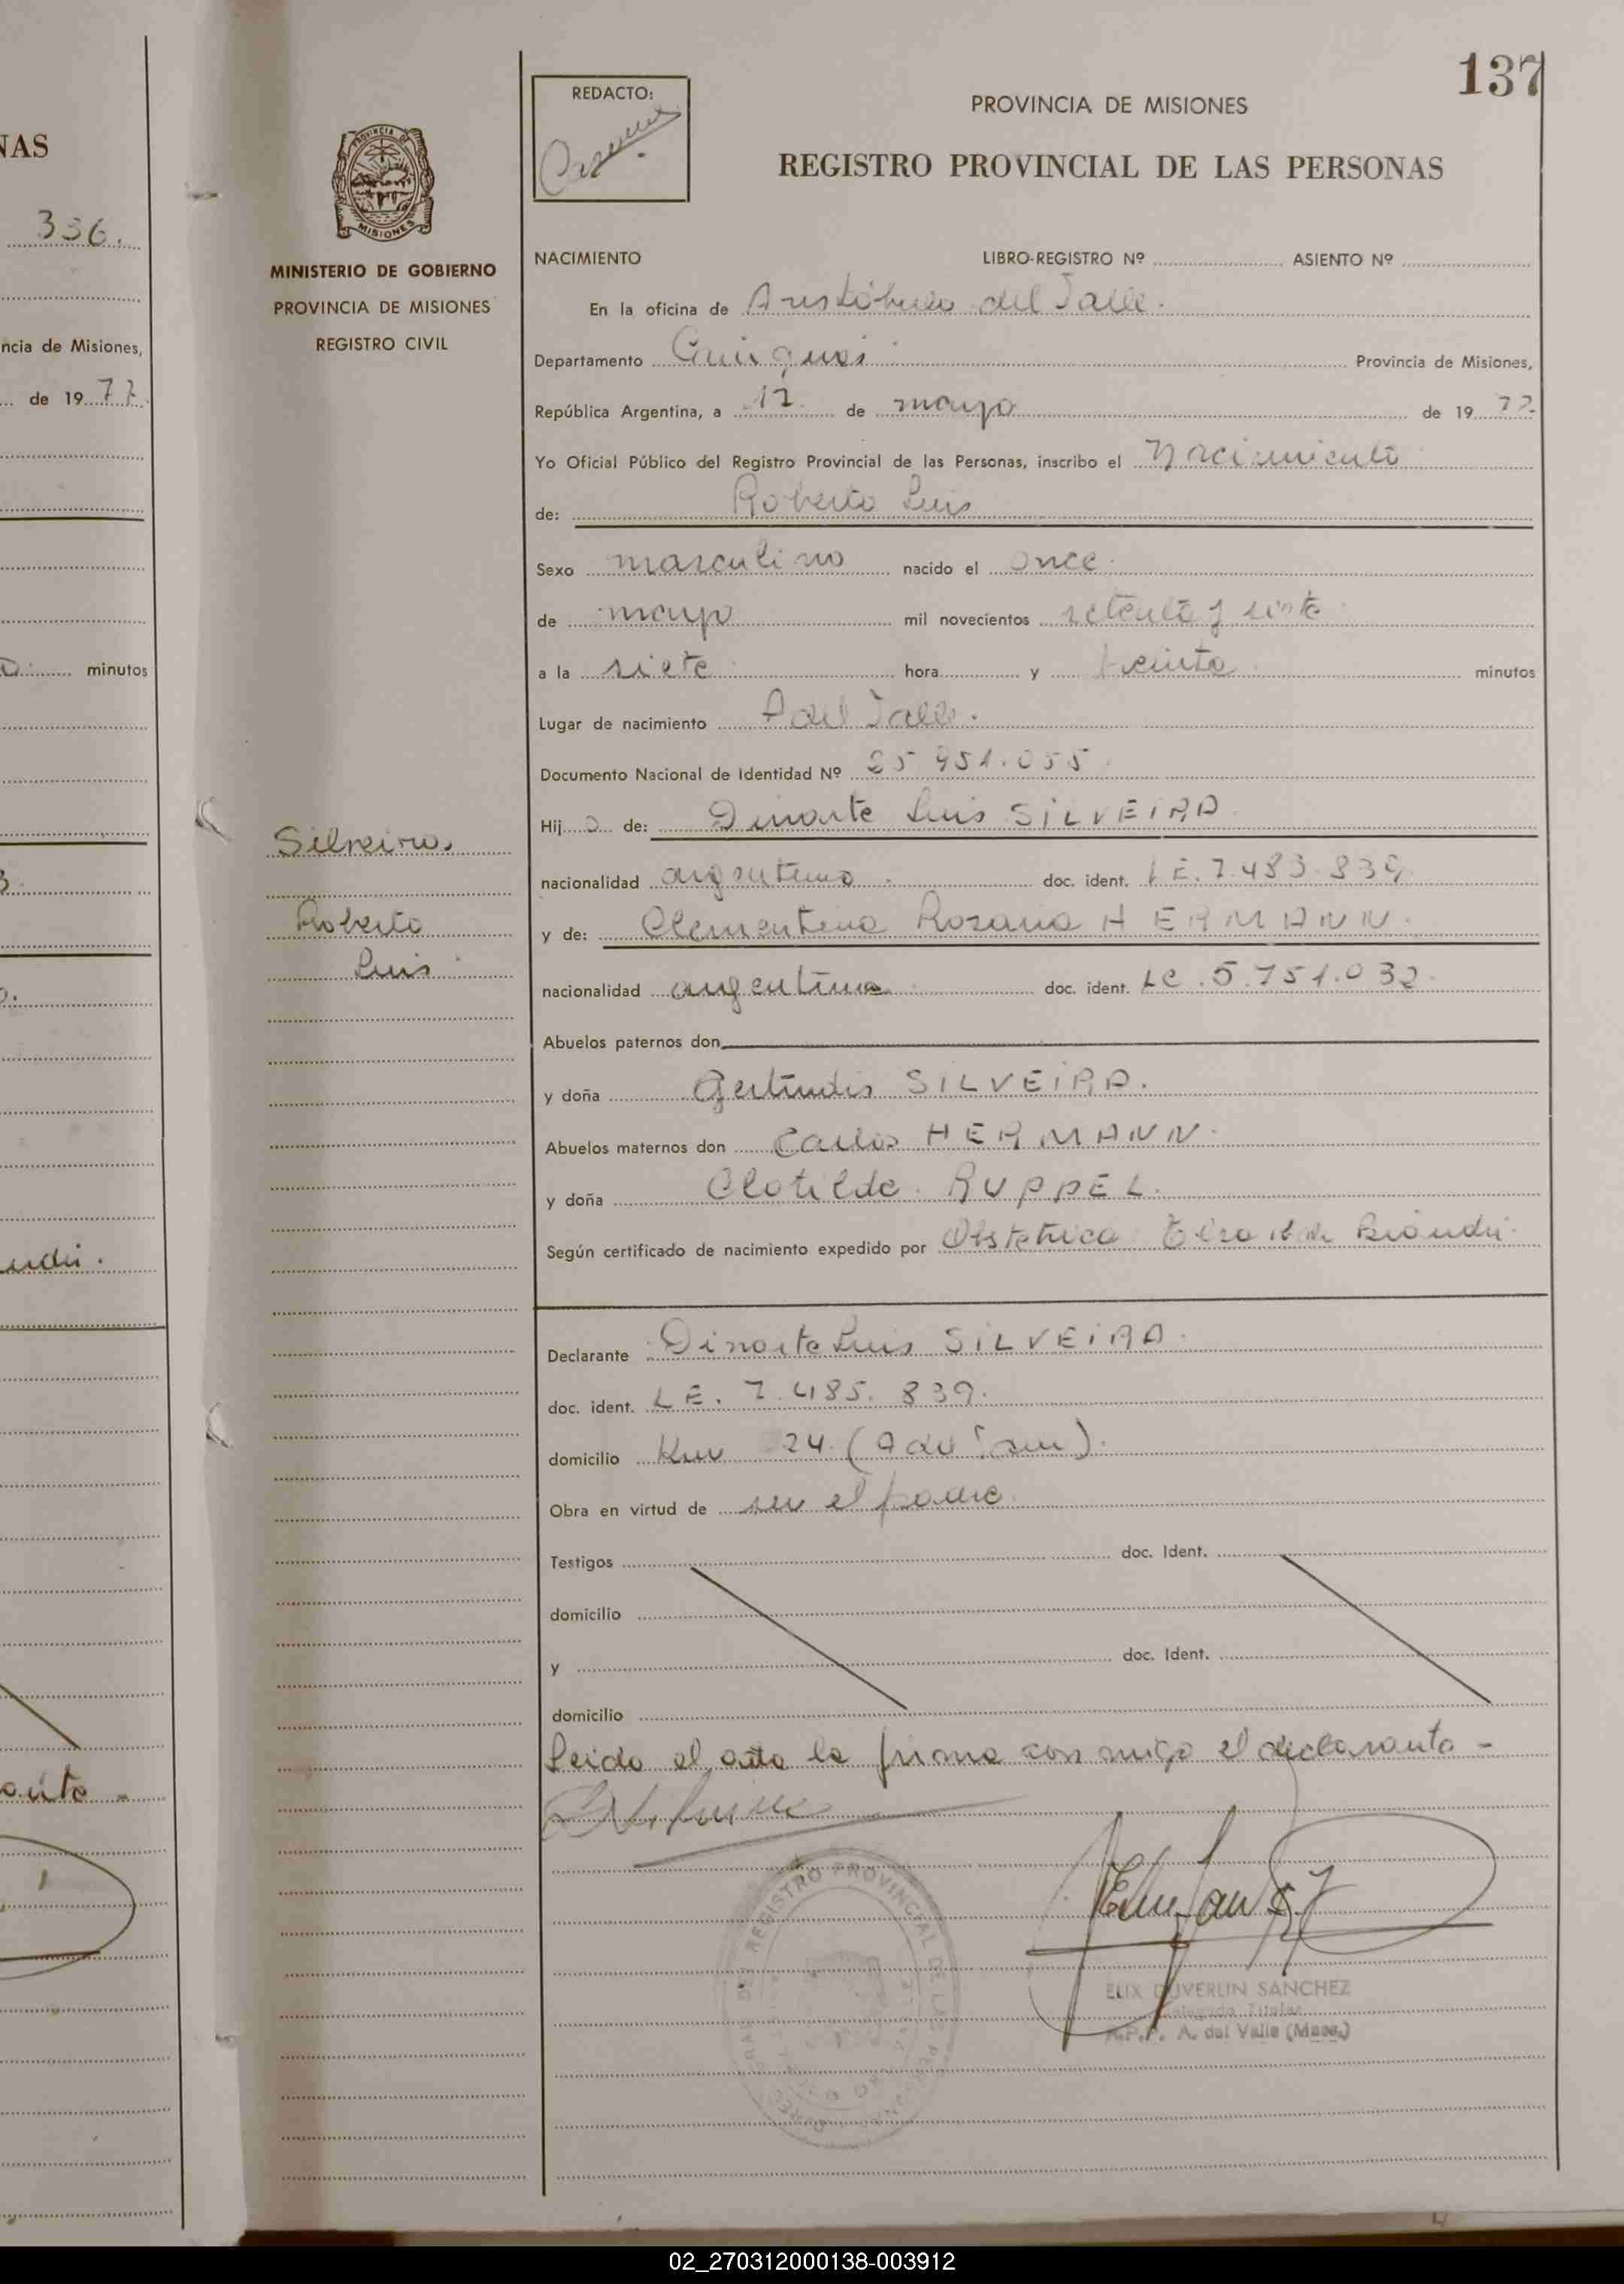 NAS
336.
ncia de Misiones,
de 19 77
minutos
ante -
MINISTERIO DE GOBIERNO
PROVINCIA DE MISIONES
REGISTRO CIVIL
Silveira
Roberto
Luis
137
REDACTO:
PROVINCIA DE MISIONES
REGISTRO PROVINCIAL DE LAS PERSONAS
NACIMIENTO LIBRO-REGISTRO Nº ASIENTO Nº
En la oficina de Aristóbulo del Valle.
Departamento Cainguás Provincia de Misiones,
República Argentina, a 12 de mayo de 19 77
Yo Oficial Público del Registro Provincial de las Personas, inscribo el Nacimiento
de: Roberto Luis
Sexo masculino nacido el once
de mayo mil novecientos setenta y siete
a la siete hora y minutos
Lugar de nacimiento A del Valle.
Documento Nacional de Identidad Nº 25 951.055
Hijo de: Dinarte Luis SILVEIRA
nacionalidad argentino doc. ident. LE. 7.485.839
y de: Clementina Rozana HERMANN.
nacionalidad argentina doc. ident. LC. 5.751.032
Abuelos paternos don
y doña Gertrudis SILVEIRA.
Abuelos maternos don Carlos HERMANN.
y doña Clotilde RUPPEL.
Según certificado de nacimiento expedido por Obstetrica Elsa de
Declarante Dinarte Luis SILVEIRA.
doc. ident. LE. 7.485.839.
domicilio Km 24 (A del
Obra en virtud de ser el padre
Testigos doc. Ident.
domicilio
y doc. Ident.
domicilio
Leido el acta la firma con migo el declarante -
REGISTRO PROVINCIAL DE LAS PERSONAS
ELIX DUVERLIN SANCHEZ
Delegado Titular
R.P.P. A. del Valle (Mnes.)
02_270312000138-003912